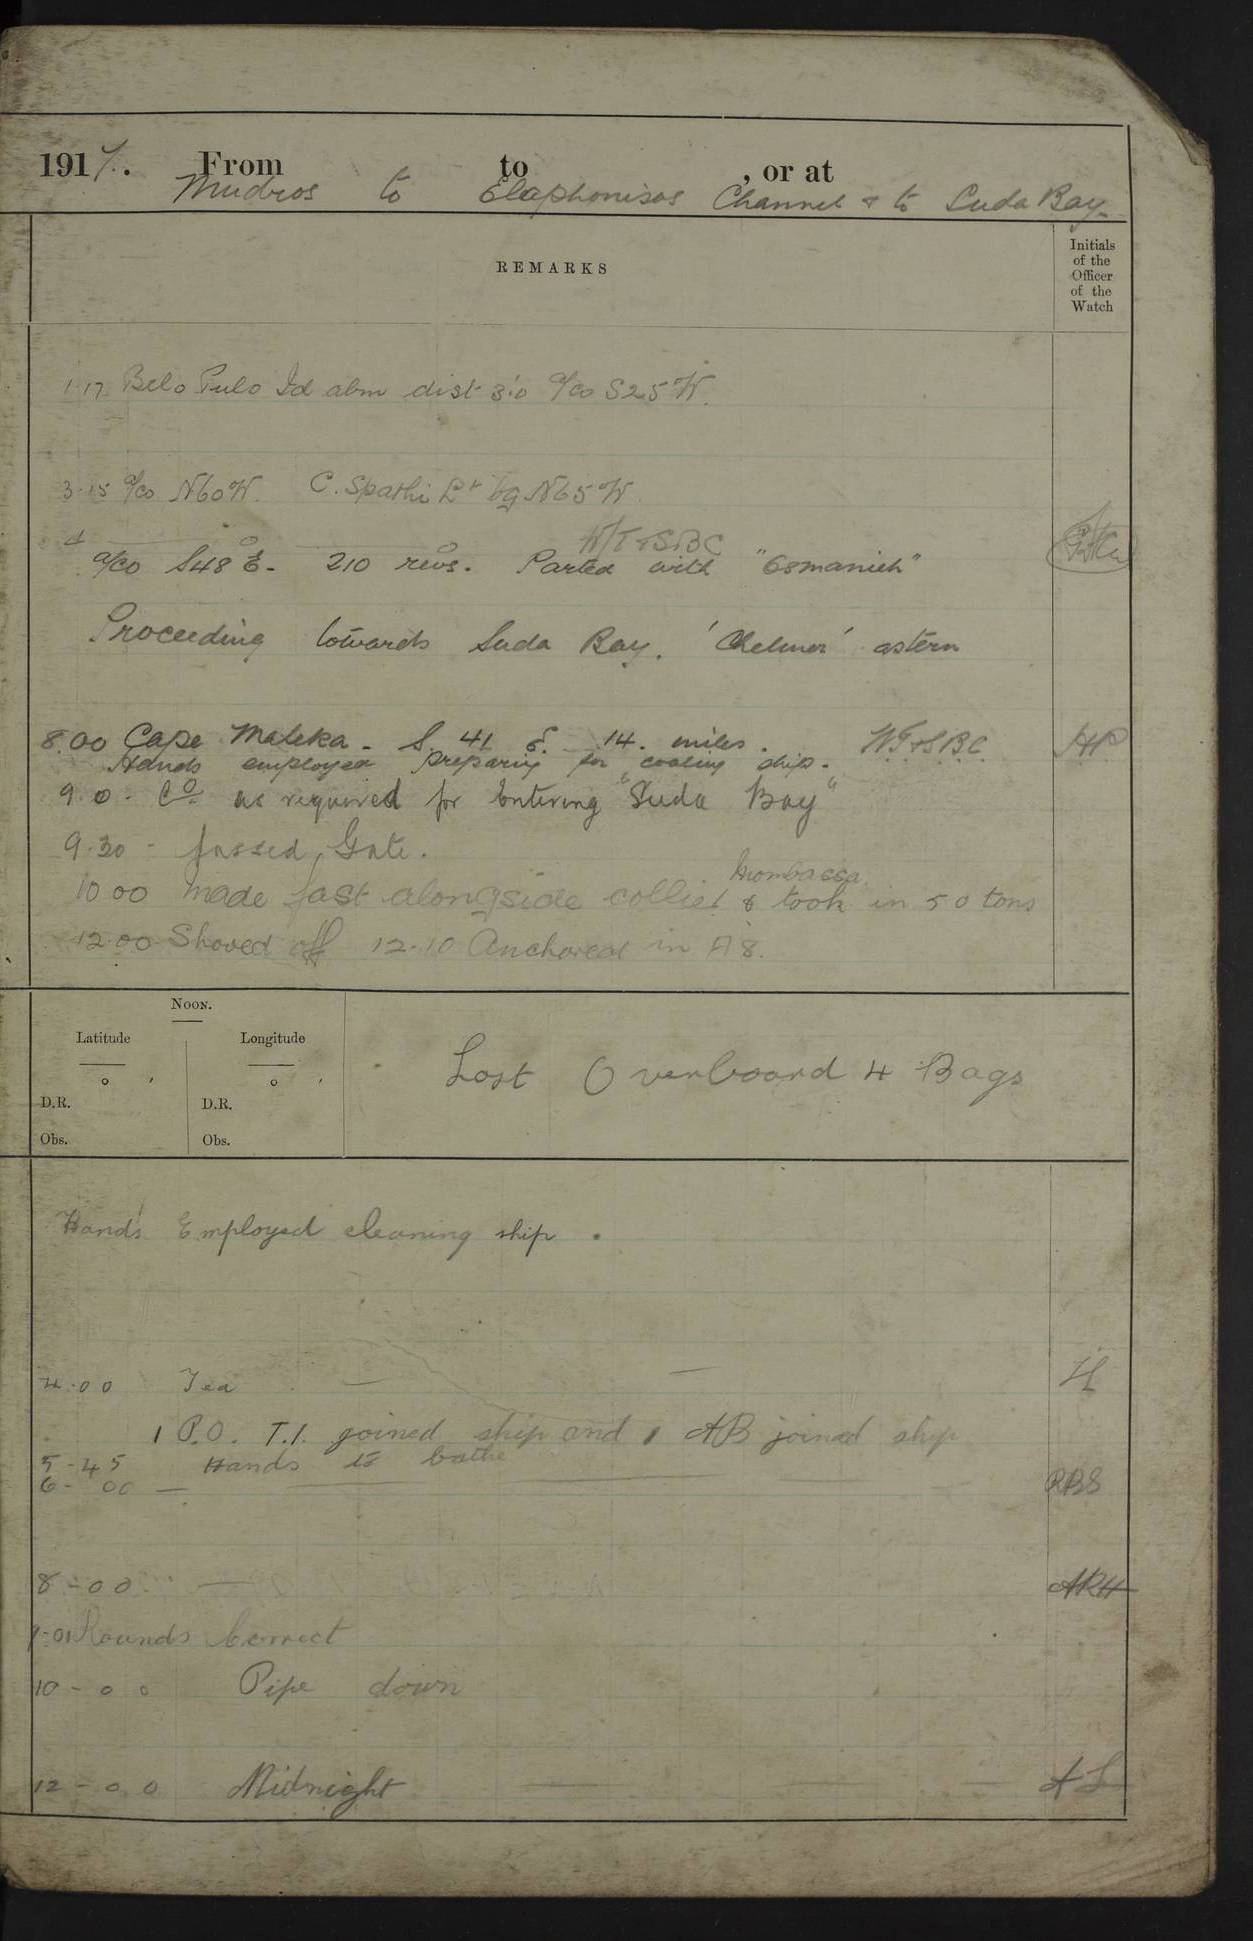 1917. From to , or at
Mudros to Elaphonisos Channel & to Suda Bay.
REMARKS
Initials
of the
Officer
of the
Watch
1.17 Belo Pulo Id abm dist 3'.0 a/co S25W.
3.15 a/co N60W. C. Spathi Lt bg N65W.
W/T & SBC
a/co S48°E. 210 revs. Parted with "Osmanieh"
Proceeding towards Suda Bay. 'Chelmer' astern
8.00 Cape Maleka. S. 41 E. 14. miles. W.T. & S.B.C. HP
Hands employed preparing for coaling ship.
9.0. Co. as required for Entering "Suda Bay"
9.30 - passed Gate.
Mombassa
10 00 Made fast alongside collier & took in 50 tons
12.00 Shoved off 12.10 Anchored in A 8.
NOON.
Latitude Longitude
° ′ ° ′
D.R. D.R.
Obs. Obs.
Lost Overboard 4 Bags
Hands Employed cleaning ship.
4.00 Tea H
1 P.O. T.I. joined ship and 1 AB joined ship
5-45 Hands to bathe
6-00 — RBS
8-00 — ARH
Rounds Correct
10-00 Pipe down
12-00 Midnight